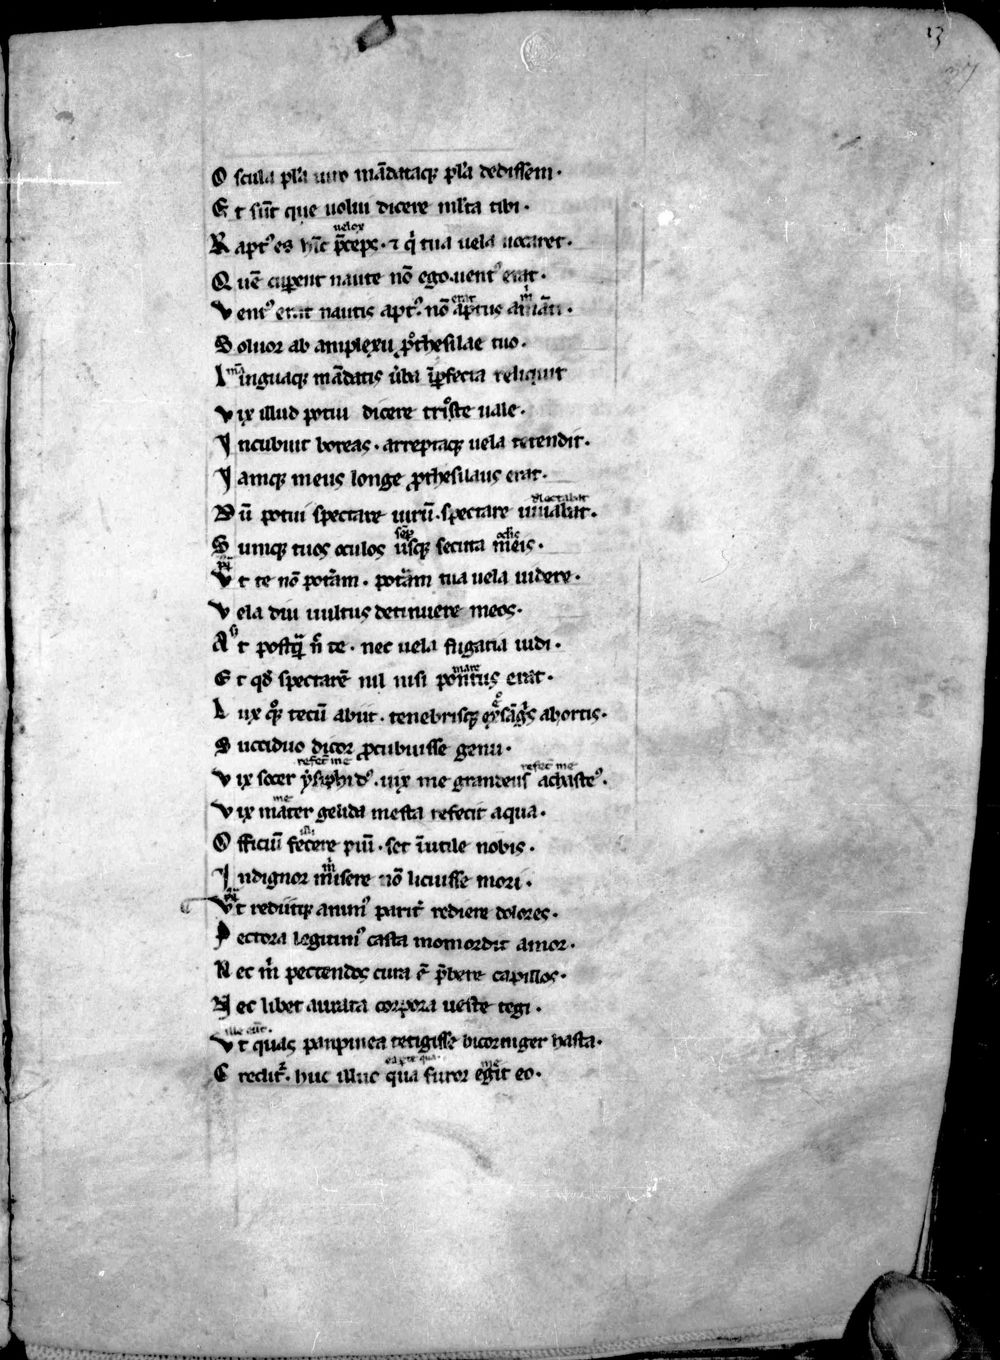 13
37
O scula pl'a uiro mādataq; pl'a dedissem.
E t sūt que uolui dicere ml'ta tibi.
uelox
R apt' es hīc p̄ceps. ⁊ q̇ tua uela uocaret.
Q uē cuperent naute nō ego. uent' erat.
erat m̄
V ent' erat nautis apt'. nō aptus amāti.
S oluor ab amplexu ꝓthesilae tuo.
L inguaq; mādatis ūba īꝑfecta reliquit
V ix illud potui dicere triste uale.
I ncubuit boreas. arreptaq; uela tetendit.
I amq; meus longe ꝓthesilaus erat.
dlectabat
D ū potui spectare uirū. spectare iuuabat.
sēp oclis
S umq; tuos oculos usq; secuta meis.
V t te nō potām. potām tua uela uidere.
V ela diu uultus detinuere meos.
A t postq̄ n̄ te. nec uela fugatia uidi.
mare
E t qd spectarē nil nisi pontus erat.
L ux q̊q; tecū abiit. tenebrisq; exsāgs abortis.
S ucciduo dicor ꝓcubuisse genu.
refec̄ me refec̄ me
V ix socer ysiphid'. uix me grandeus achaste'.
me
V ix mater gelida mesta refecit aqua.
illi
O fficiū fecere piū. set īutile nobis.
m̄
I ndignor misere nō licuisse mori.
V t rediitq; anim' parit̄ rediere dolores.
P ectora legitim' casta momordit amor.
N ec m̄ pectendos cura ē p̄bere capillos.
N ec libet aurata corpora ueste tegi.
ille eūt.
V t quas panpinea tetigisse bicorniger hasta.
me
C redit̄. huc illuc qua furor egit eo.